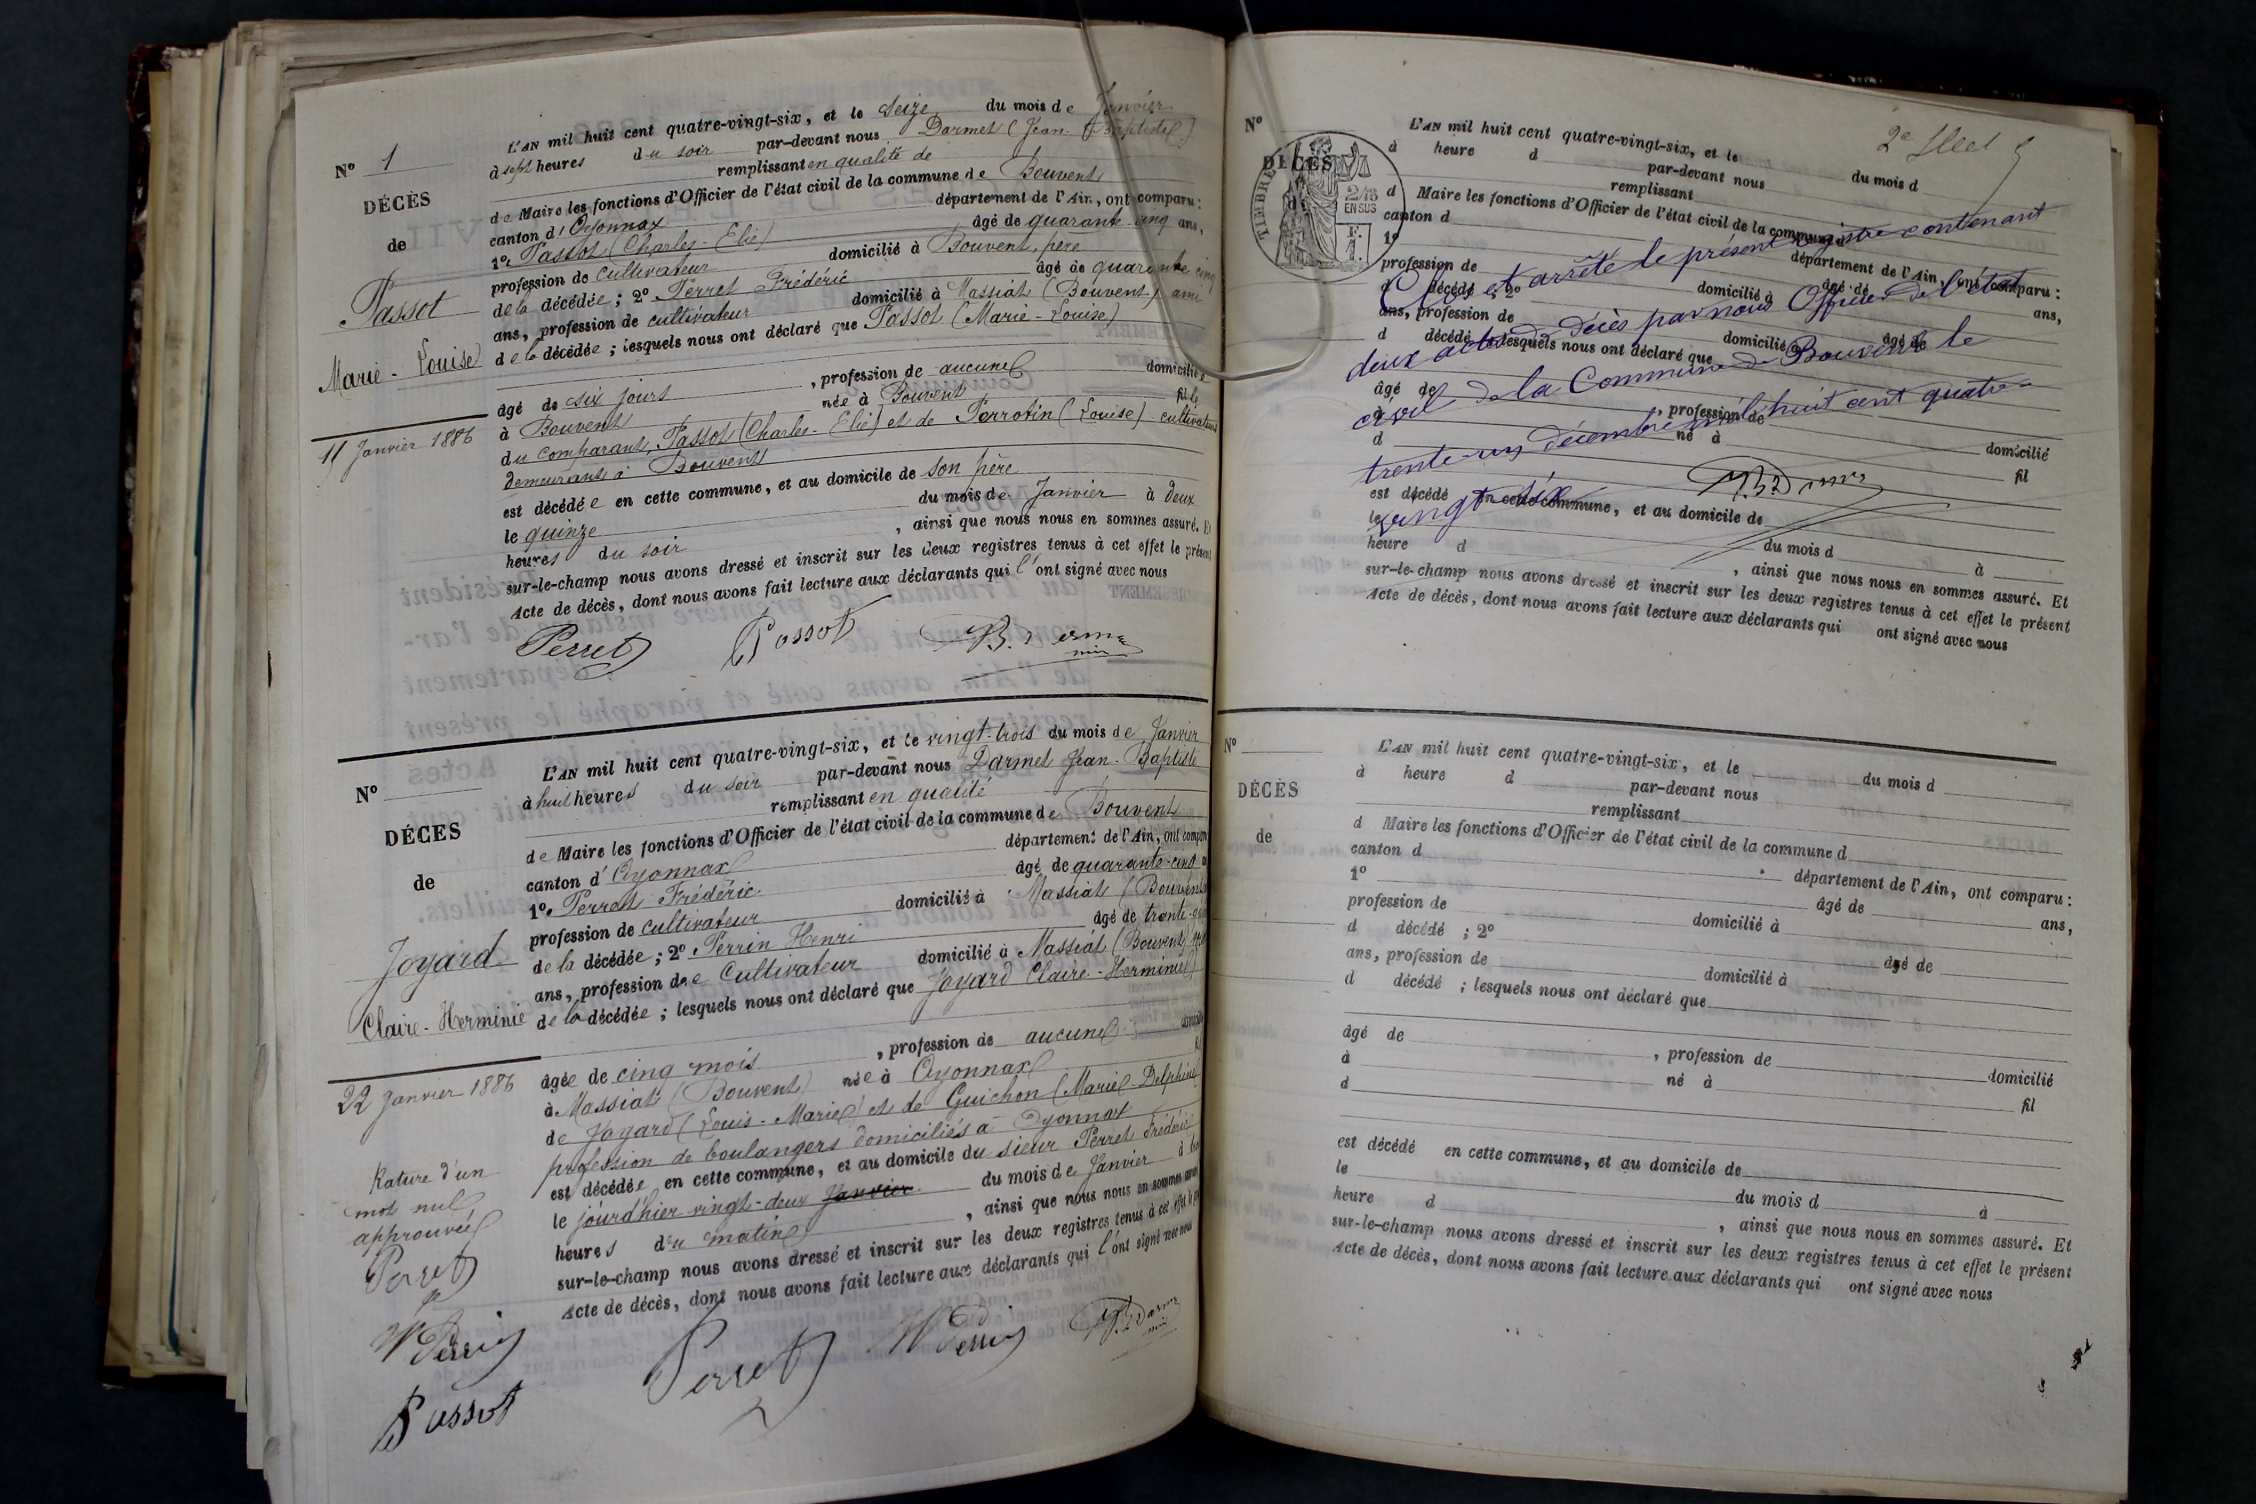 N° 1
DÉCÈS
de
Passot
Marie - Louise
11 Janvier 1886
L'AN mil huit cent quatre-vingt-six, et le seize du mois de Janvier
à sept heures du soir par-devant nous Darmet (Jean-Baptiste)
remplissant en qualité de
de Maire les fonctions d'Officier de l'état civil de la commune de Bouvent
canton d'Oyonnax département de l'Ain, ont comparu :
1° Passot (Charles-Elie) âgé de quarante-cinq ans,
profession de cultivateur domicilié à Bouvent, père
de la décédée ; 2° Perret Frédéric âgé de quarante cinq
ans, profession de cultivateur domicilié à Massiat (Bouvent) ami
de la décédée ; lesquels nous ont déclaré que Passot (Marie-Louise)
âgé de six jours, profession de aucune domiciliée
à Bouvent née à Bouvent fille
du comparant, Passot (Charles-Elie) et de Perrotin (Louise) cultivateurs
demeurant à Bouvent
est décédée en cette commune, et au domicile de son père
le quinze du mois de Janvier à deux
heures du soir, ainsi que nous nous en sommes assuré. Et
sur-le-champ nous avons dressé et inscrit sur les deux registres tenus à cet effet le présent
Acte de décès, dont nous avons fait lecture aux déclarants qui l'ont signé avec nous
Perret Passot
N°
DÉCES
de
Joyard
Claire-Herminie
22 Janvier 1886
Rature d'un
mot nul
approuvée
Perret
Perrin
Passot
L'AN mil huit cent quatre-vingt-six, et le vingt-trois du mois de Janvier
à huit heures du soir par-devant nous Darmet Jean-Baptiste
remplissant en qualité
de Maire les fonctions d'Officier de l'état civil de la commune de Bouvent
canton d'Oyonnax département de l'Ain, ont comparu
1° Perret Frédéric âgé de quarante-cinq
profession de cultivateur domicilié à Massiat (Bouvent)
de la décédée ; 2° Perrin Henri âgé de trente
ans, profession de Cultivateur domicilié à Massiat (Bouvent)
de la décédée ; lesquels nous ont déclaré que Joyard Claire-Herminie
âgée de cinq mois, profession de aucune domiciliée
à Massiat (Bouvent) née à Oyonnax
de Joyard (Louis-Marie) et de Guichon (Marie-Delphine)
profession de boulangers domiciliés à Oyonnax
est décédée en cette commune, et au domicile du sieur Perret Frédéric
le jour d'hier vingt-deux Janvier du mois de Janvier à
heures du matin, ainsi que nous nous en sommes assuré
sur-le-champ nous avons dressé et inscrit sur les deux registres tenus à cet effet le
Acte de décès, dont nous avons fait lecture aux déclarants qui l'ont signé avec nous
Perret Perrin
2e
N°
DÉCÈS
TIMBRE
EN SUS
L'AN mil huit cent quatre-vingt-six, et le du mois d
à heure d par-devant nous
remplissant
d Maire les fonctions d'Officier de l'état civil de la commune d
canton d département de l'Ain, ont comparu :
1° âgé de ans,
profession de domicilié à
d décédé ; 2° âgé de
ans, profession de domicilié à
d décédé ; lesquels nous ont déclaré que
âgé de , profession de domicilié
à né à fil
d
est décédé en cette commune, et au domicile de
le du mois d à
heure d , ainsi que nous nous en sommes assuré. Et
sur-le-champ nous avons dressé et inscrit sur les deux registres tenus à cet effet le présent
Acte de décès, dont nous avons fait lecture aux déclarants qui ont signé avec nous
Clos et arrêté le présent registre contenant
deux actes de décès par nous Officier de l'état
civil de la Commune de Bouvent le
trente-un décembre mil huit cent quatre-
vingt-six
N°
DÉCÈS
de
L'AN mil huit cent quatre-vingt-six, et le du mois d
à heure d par-devant nous
remplissant
d Maire les fonctions d'Officier de l'état civil de la commune d
canton d département de l'Ain, ont comparu :
1° âgé de ans,
profession de domicilié à
d décédé ; 2° âgé de
ans, profession de domicilié à
d décédé ; lesquels nous ont déclaré que
âgé de , profession de domicilié
à né à fil
d
est décédé en cette commune, et au domicile de
le du mois d à
heure d , ainsi que nous nous en sommes assuré. Et
sur-le-champ nous avons dressé et inscrit sur les deux registres tenus à cet effet le présent
Acte de décès, dont nous avons fait lecture aux déclarants qui ont signé avec nous